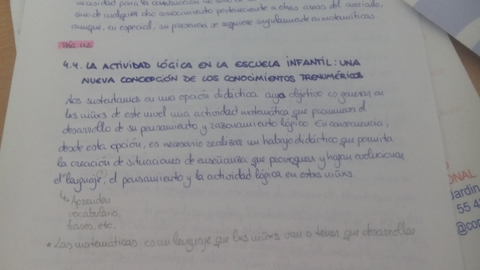 sino de cualquier otro conocimiento perteneciente a otras áreas del currículo,
aunque, en especial, su presencia se requiere singularmente en matemáticas.
4.4. LA ACTIVIDAD LÓGICA EN LA ESCUELA INFANTIL: UNA
NUEVA CONCEPCIÓN DE LOS CONOCIMIENTOS PRENUMÉRICOS
Nos sustentamos en una opción didáctica cuyo objetivo es generar en
lxs niñxs de este nivel una actividad matemática que promueva el
desarrollo de su pensamiento y razonamiento lógico. En consecuencia,
desde esta opción, es necesario realizar un trabajo didáctico que permita
la creación de situaciones de enseñanza que provoquen y hagan evolucionar
el lenguaje, el pensamiento y la actividad lógica en estxs niñxs.
Aprender
vocabulario,
frases, etc.
* Las matemáticas, como lenguaje que lxs niñxs van a tener que desarrollar
ONAL
Jardín
55 4
@co